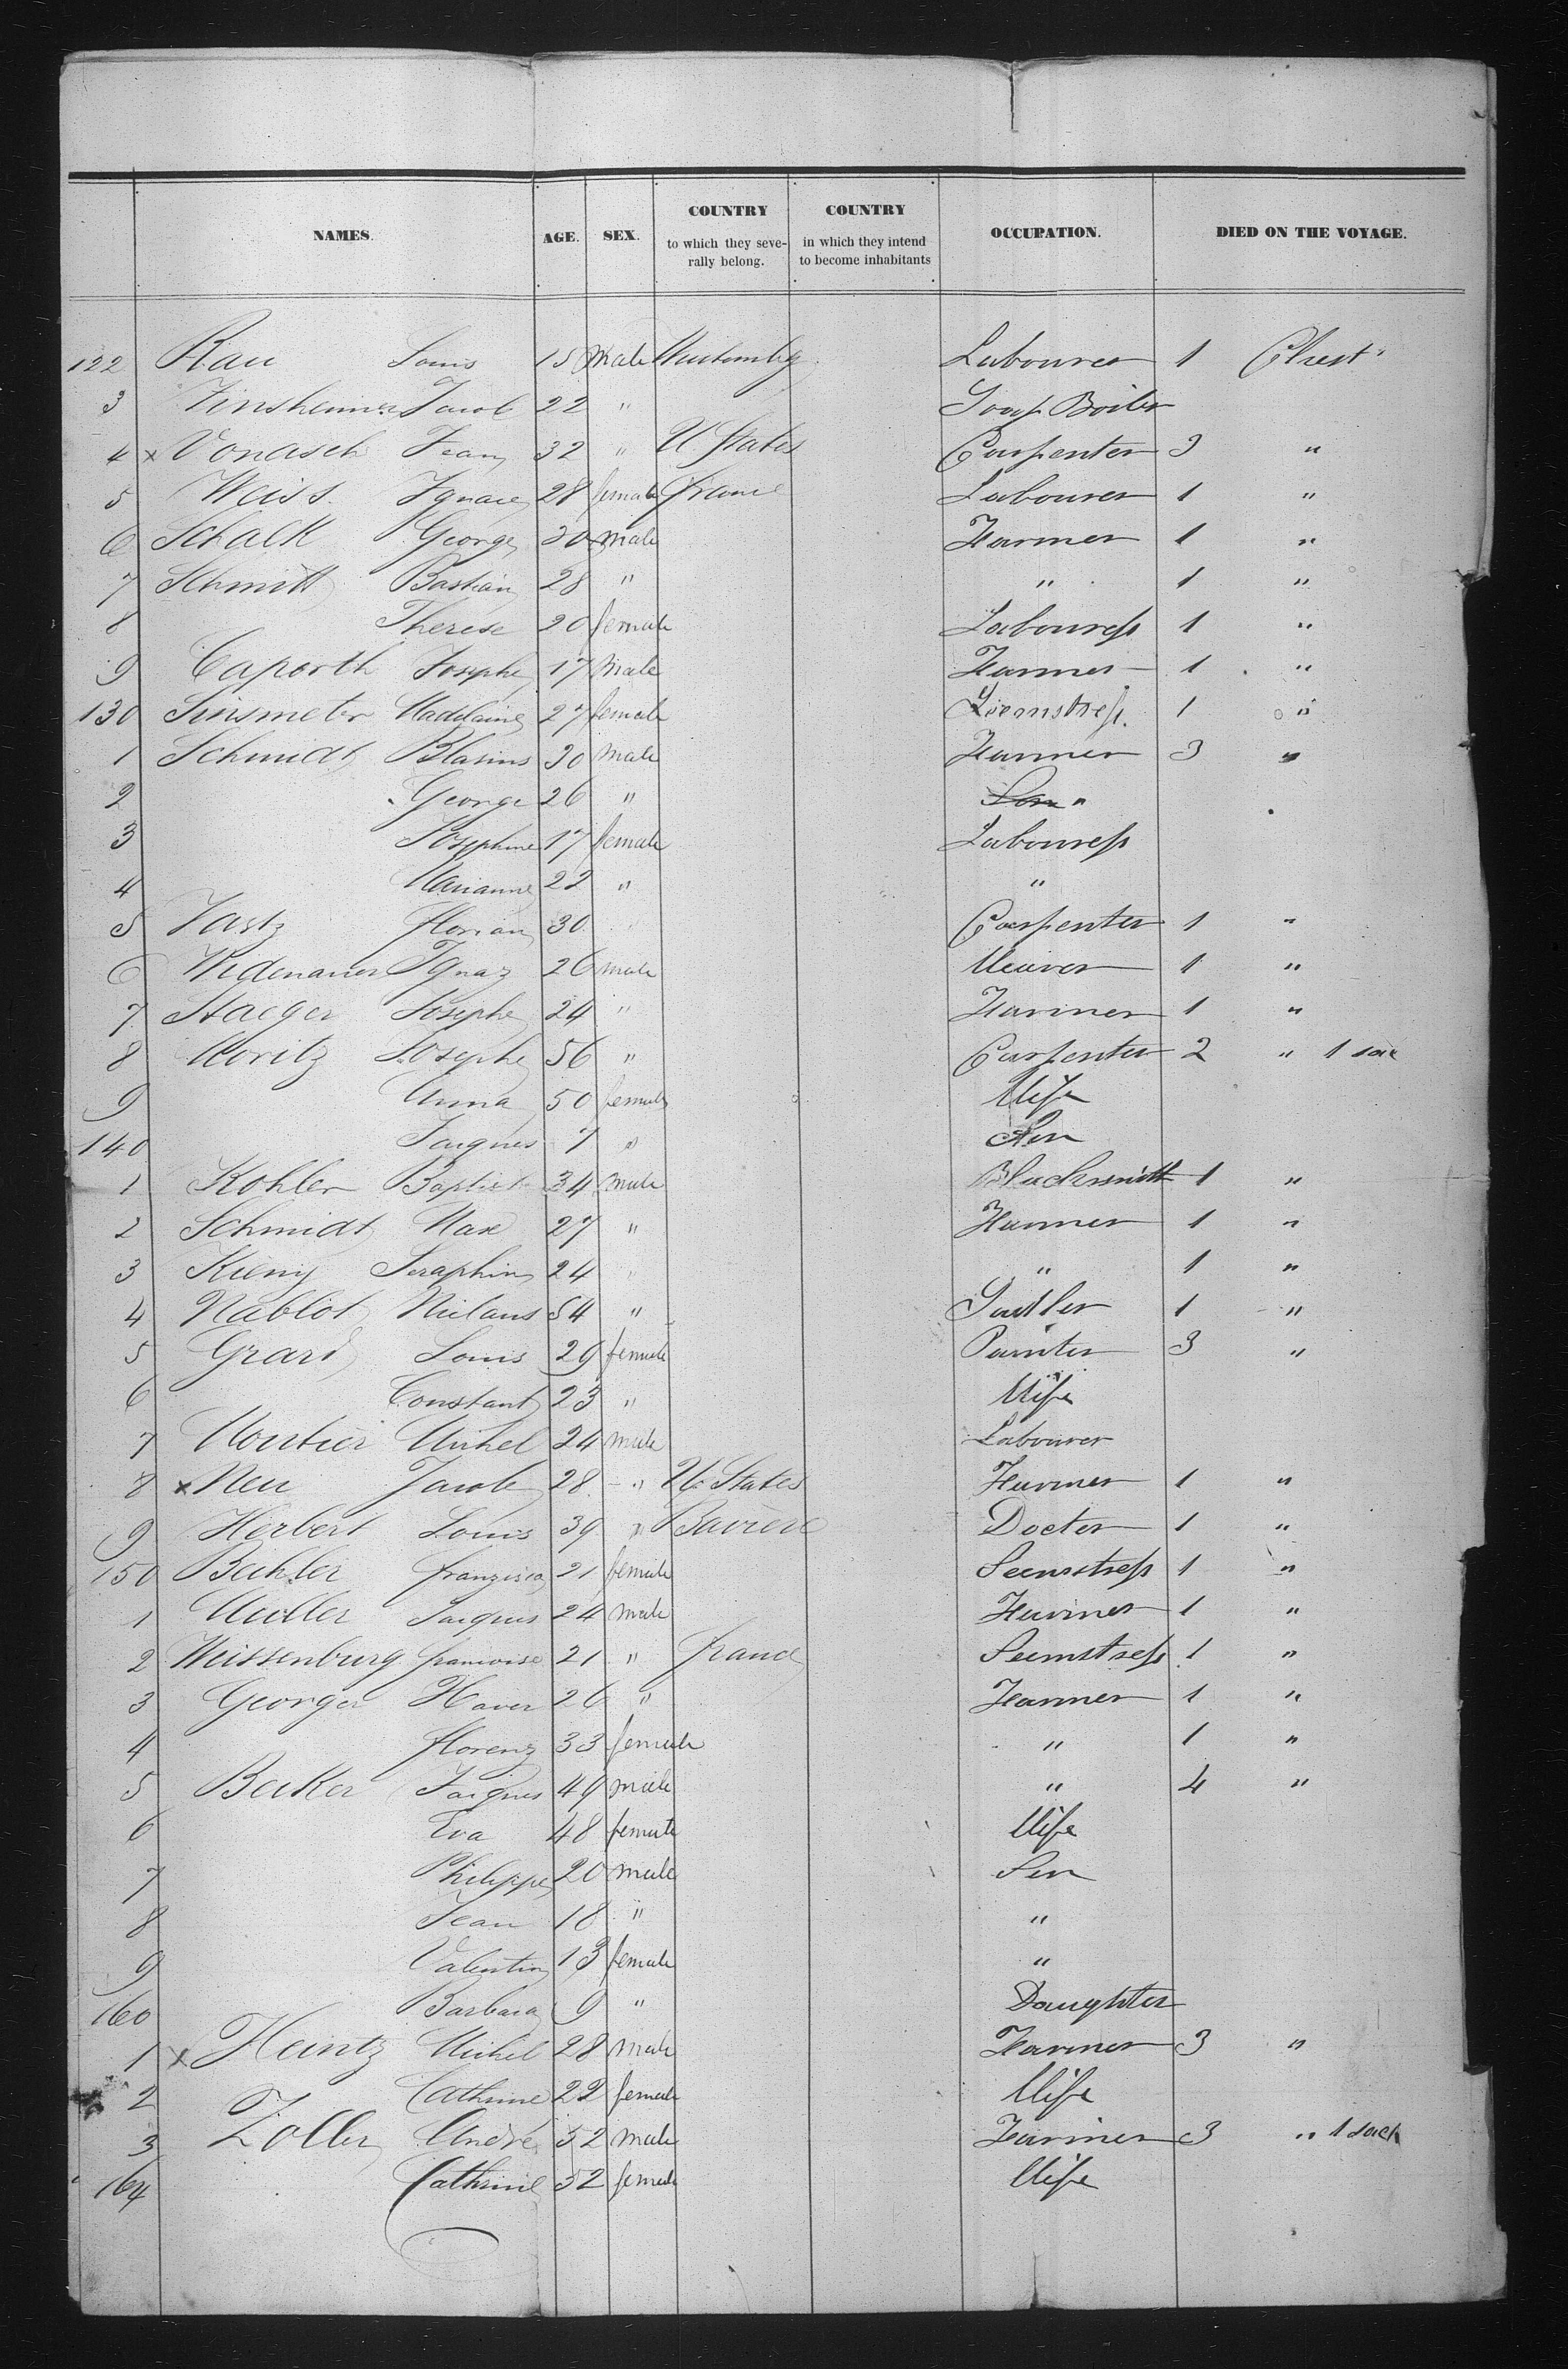 NAMES. AGE. SEX. COUNTRY to which they seve- rally belong. COUNTRY in which they intend to become inhabitants OCCUPATION. DIED ON THE VOYAGE.
122 Rau Louis 15 male Wurtemberg Labourer 1 Chest
3 Zinsheimer Jacob 22 " Soap Boiler
4 x Vonasch Jean 32 " U States Carpenter 3 "
5 Weiss Ignace 28 female France Labourer 1 "
6 Schalk George 30 male Farmer 1 "
7 Schmitt Bastian 28 " " 1 "
8 Therese 20 female Labouress 1 "
9 Caporth Josephe 17 male Farmer 1 "
130 Sinsmeter Madelaine 27 female Seemstress. 1 "
1 Schmidt Blasius 30 male Farmer 3 "
2 George 26 " Son "
3 Josephine 17 female Labouress
4 Marianne 22 " "
5 Florian 30 Carpenter 1 "
6 Widenauer Ignaz 26 male Weaver 1 "
7 Staeger Josephe 24 " Farmer 1 "
8 Moritz Josephe 56 " Carpenter 2 " 1 sac
9 Anna 50 female Wife
140 Jaques 7 " Son
1 Kohler Baptist 34 male Blacksmith 1 "
2 Schmidt Max 27 " Farmer 1 "
3 Kieny Seraphin 24 " " 1 "
4 Nablot Niclaus 54 " 1 "
5 Grard Louis 29 female Painter 3 "
6 Constant 23 " Wife
7 Moutier Michel 24 male Labourer
8 x Neu Jacob 28 " U. States Farmer 1 "
9 Herbert Louis 39 " Baviere Docter 1 "
150 Bechler Franzisca 21 female Seemstress 1 "
1 Muller Jaques 24 male Farmer 1 "
2 Weissenburg francoise 21 " France Seemstress 1 "
3 Georger Xaver 26 " Farmer 1 "
4 florenz 33 female " 1 "
5 Becker Jaques 49 male " 4 "
6 Eva 48 female Wife
7 Philippe 20 male Son
8 Jean 18 " "
9 Valentin 13 female "
160 Barbara 9 " Daughter
1 x Heintz Michel 28 male Farmer 3 "
2 Cathrine 22 female Wife
3 Zoller André 52 male Farmer 3 " 1 sack
164 Cathrine 52 female Wife